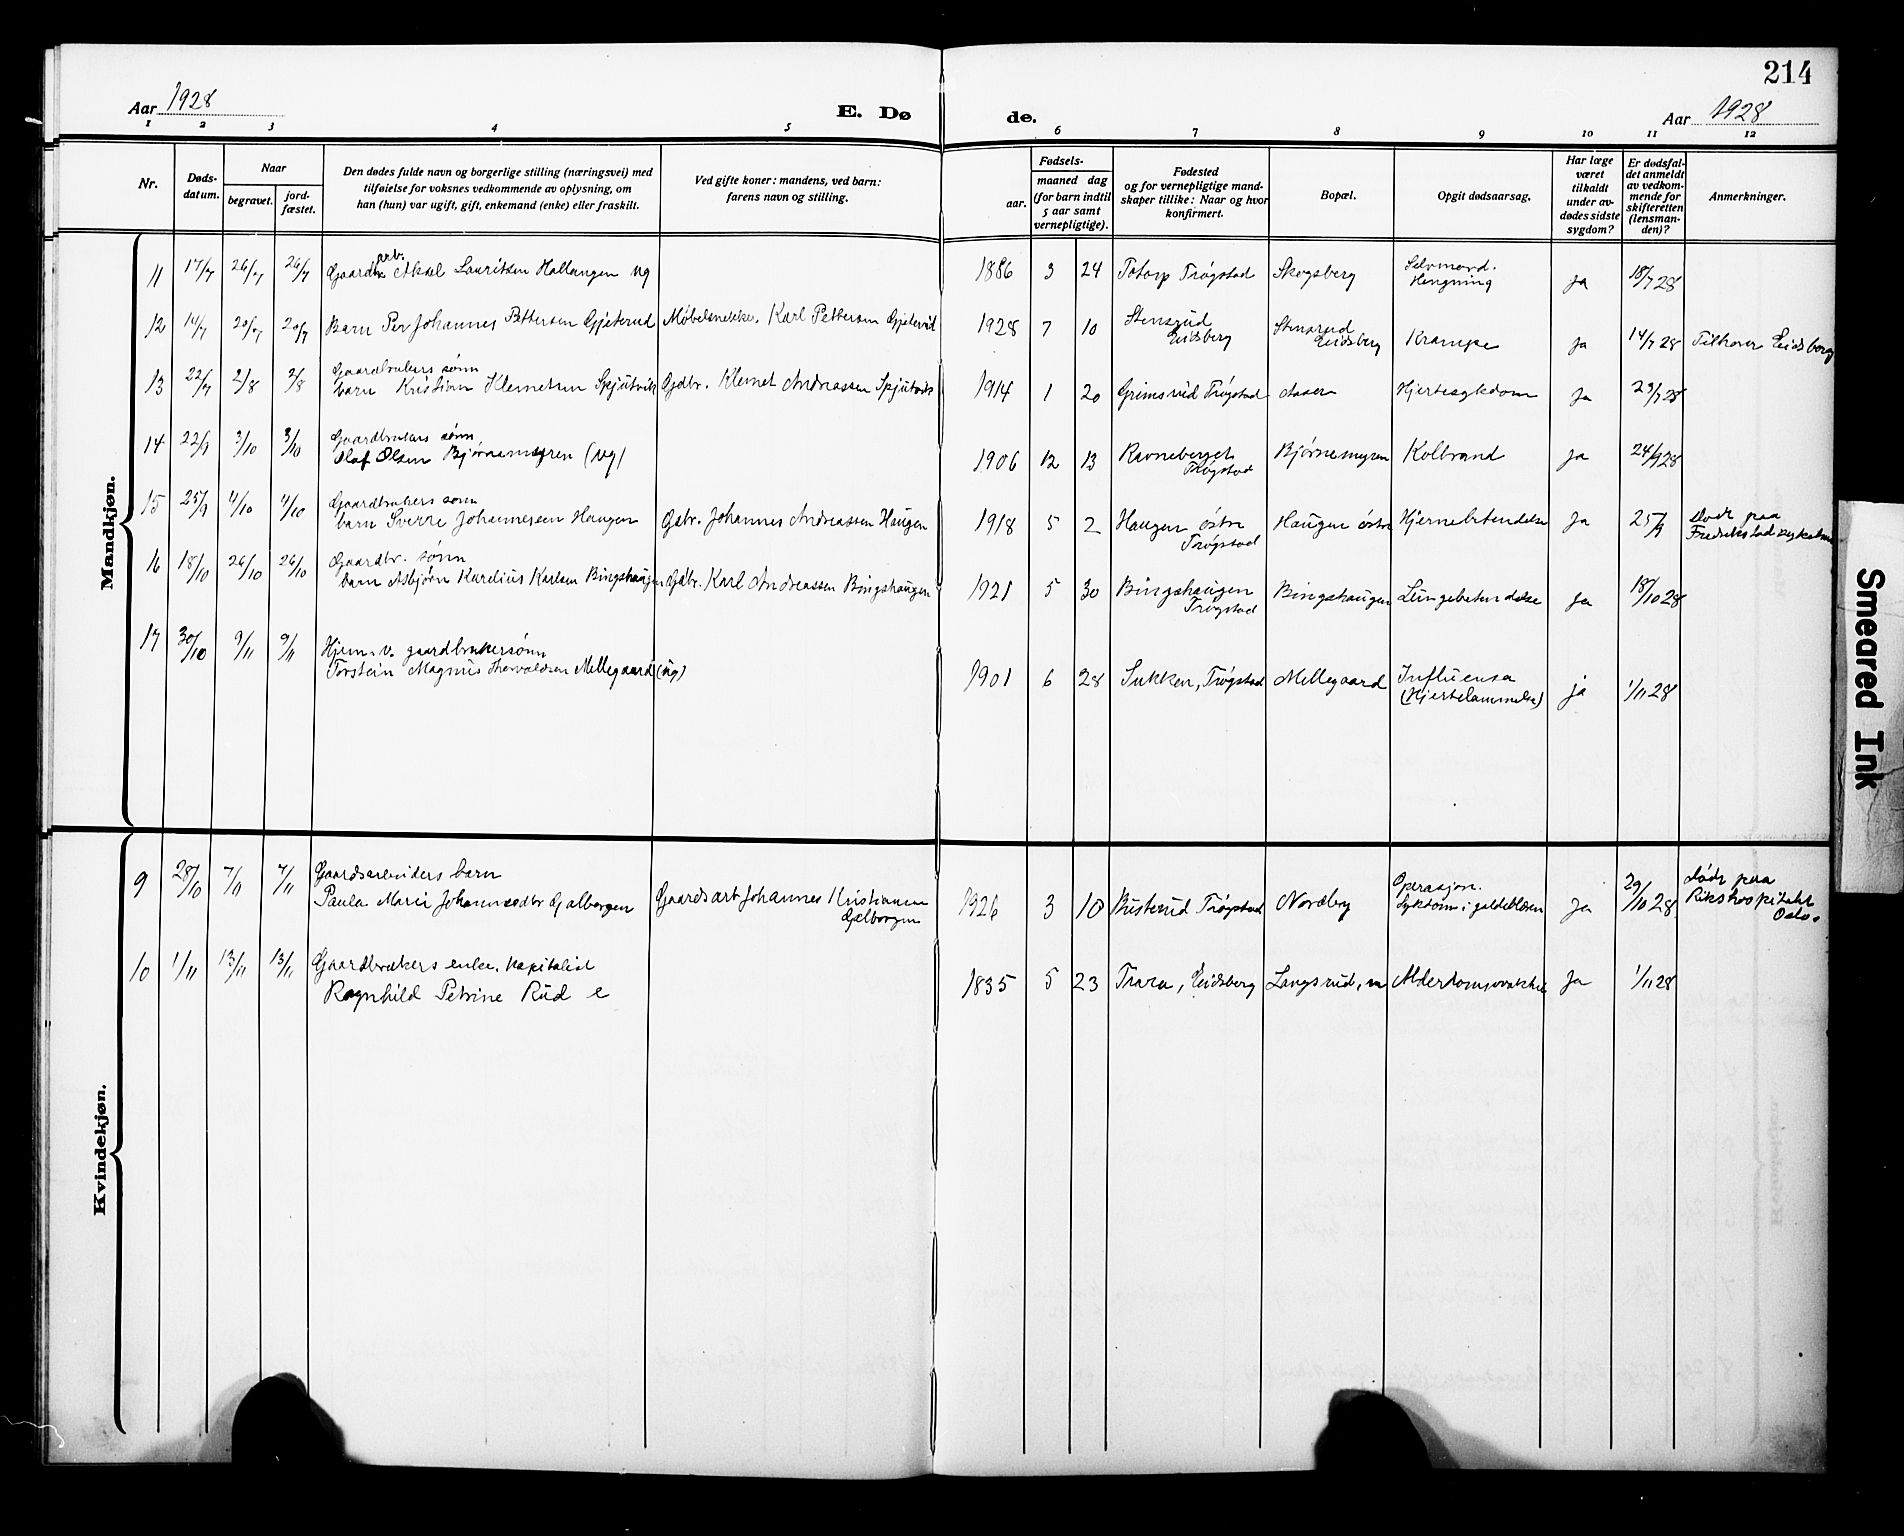 214
Aar 1928
E. Dø
de.
Aar 1928
1 2 3 4 5 6 7 8 9 10 11 12
Nr.
Døds-
datum.
Naar
begravet.
jord-
fæstet.
Den dødes fulde navn og borgerlige stilling (næringsvei) med
tilføielse for voksnes vedkommende av oplysning, om
han (hun) var ugift, gift, enkemand (enke) eller fraskilt.
Ved gifte koner: mandens, ved barn:
farens navn og stilling.
Fødsels-
aar.
maaned dag
(for barn indtil
5 aar samt
vernepligtige).
Fødested
og for vernepligtige mand-
skaper tillike: Naar og hvor
konfirmert.
Bopæl.
Opgit dødsaarsag.
Har læge
været
tilkaldt
under av-
dødes sidste
sygdom?
Er dødsfal-
det anmeldt
av vedkom-
mende for
skifteretten
(lensman-
den)?
Anmerkninger.
Mandkjøn.
11 17/7 26/7 26/7 Gaard arb. Aksel Lauritsen Hallangen ug 1886 3 24 Totorp Trøgstad Skogsberg Selvmord.
Hengning ja 18/7 28
12 14/7 20/7 20/7 Barn Per Johannes Pettersen Gjeterud Møbelsnekke. Karl Pettersen Gjeterud 1928 7 10 Stensrud
Eidsberg Stensrud
Eidsberg Krampe ja 14/7 28 Tilhører Eidsberg
13 22/7 2/8 2/8 Gaardbrukers sønn
barn Kristian Klemetsen Spjutvik Gdbr. Klemet Andreassen Spjutvik 1914 1 20 Grimsrud Trøgstad Aasen Hjertesykdom ja 23/7 28
14 22/9 3/10 3/10 Gaardbrukers sønn
Olaf Olsen Bjørnemyren (ug) 1906 12 13 Ravneberget
Trøgstad Bjørnemyren Kolbrand ja 24/9 28
15 25/9 4/10 4/10 Gaardbrukers sønn
barn Sverre Johannessen Haugen Gdbr. Johannes Andreassen Haugen 1918 5 2 Haugen østre
Trøgstad Haugen østre Hjernebetendelse ja 25/9 Døde paa
Fredrikstad sykehus
16 18/10 26/10 26/10 Gaardbr. sønn
barn Asbjørn Karelius Karlsen Bingshaugen Gdbr. Karl Andreassen Bingshaugen 1921 5 30 Bingshaugen
Trøgstad Bingshaugen Lungebetendelse ja 19/10 28
17 30/10 9/11 9/11 Hjem. v. gaardbrukersønn
Torstein Magnus Thorvaldsen Mellegaard (ug) 1901 6 28 Sukken, Trøgstad Mellegaard Influensa
(Hjertelammelse) ja 1/11 28
Kvindekjøn.
9 28/10 7/11 7/11 Gaardsarbeiders barn
Paula Marie Johannesdtr Galborgen Gaardsarb Johannes Kristiansen
Galborgen 1926 3 10 Busterud Trøgstad Nordby Operasjon.
Sykdom i galdeblæren Ja 29/10 28 døde paa
Rikshospitalet
Oslo.
10 1/11 13/11 13/11 Gaardbrukers enke, kapitalist
Ragnhild Petrine Rud e 1835 5 23 Trara, Eidsberg Langsrud, Alderdomssvakhet Ja 1/11 28
Smeared Ink